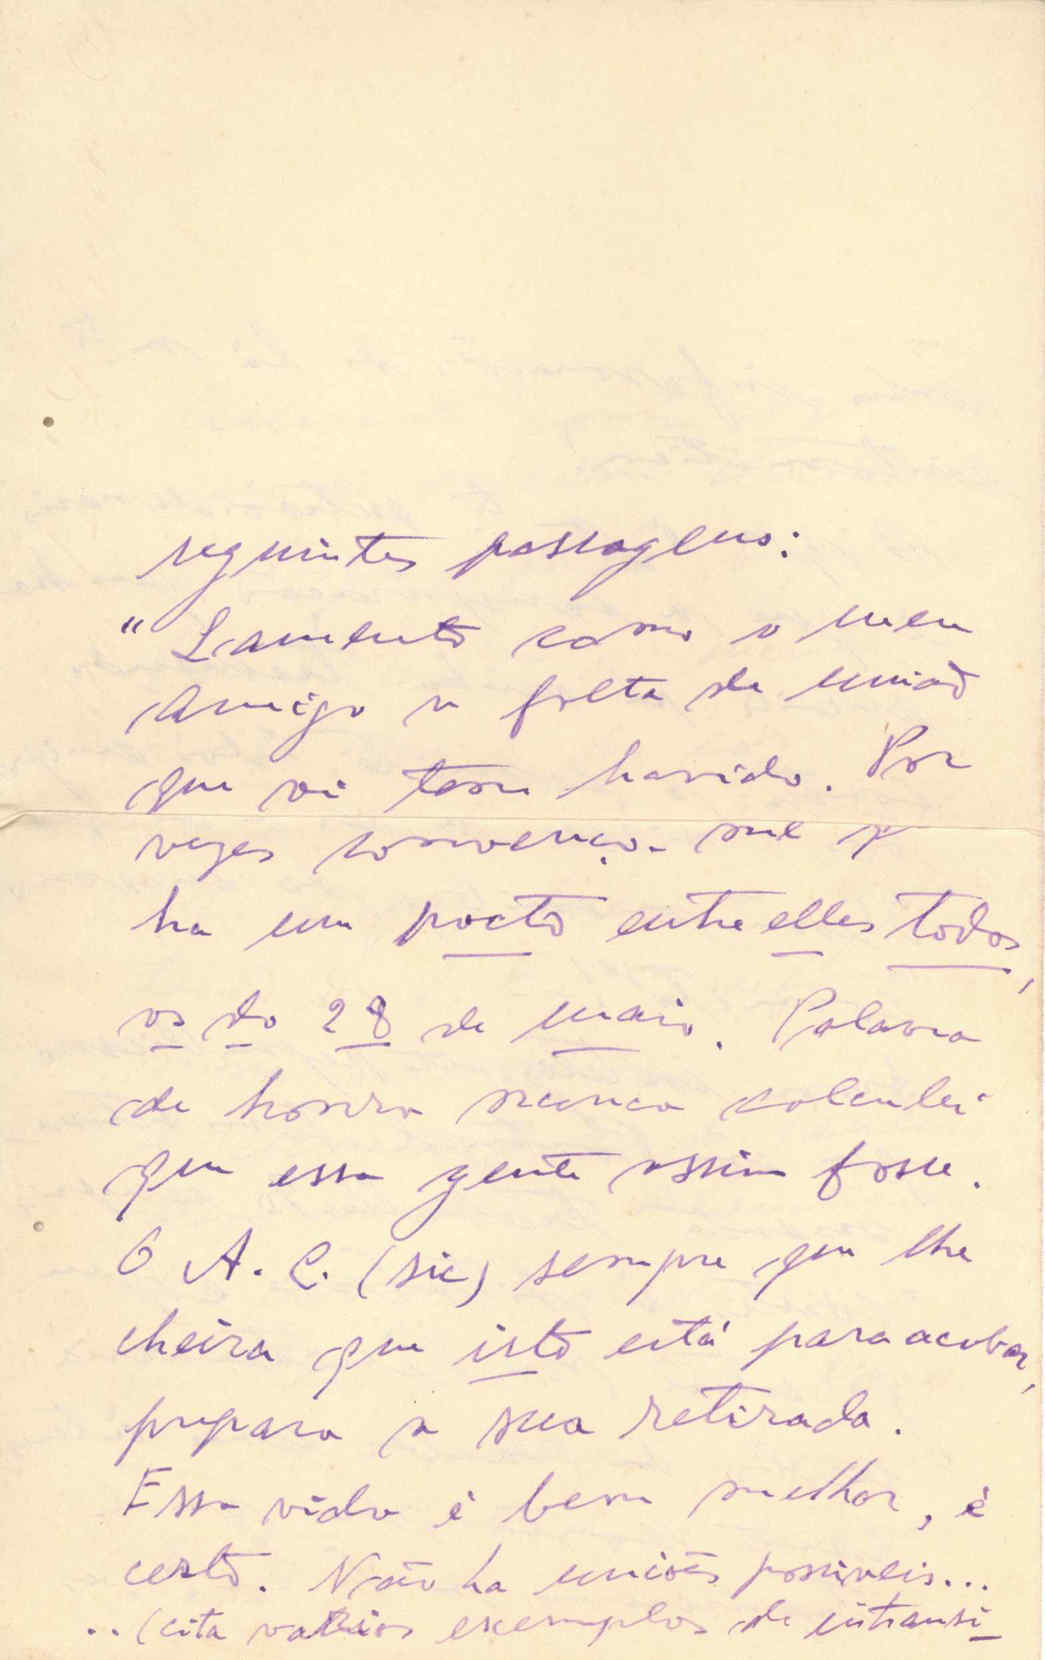 seguintes passagens:
"Lamento como o meu
amigo a falta de união
que vi tem havido. Por
vezes convenço-me q
ha um pacto entre elles todos,
os do 28 de maio. Palavra
de honra nunca calculei
que essa gente assim fosse.
O A. C. (sic) sempre que lhe
cheira que isto está para acabar,
prepara a sua retirada.
Essa vida é bem melhor, é
certo. Não ha uniões possiveis...
..(cita varios exemplos de intransi-